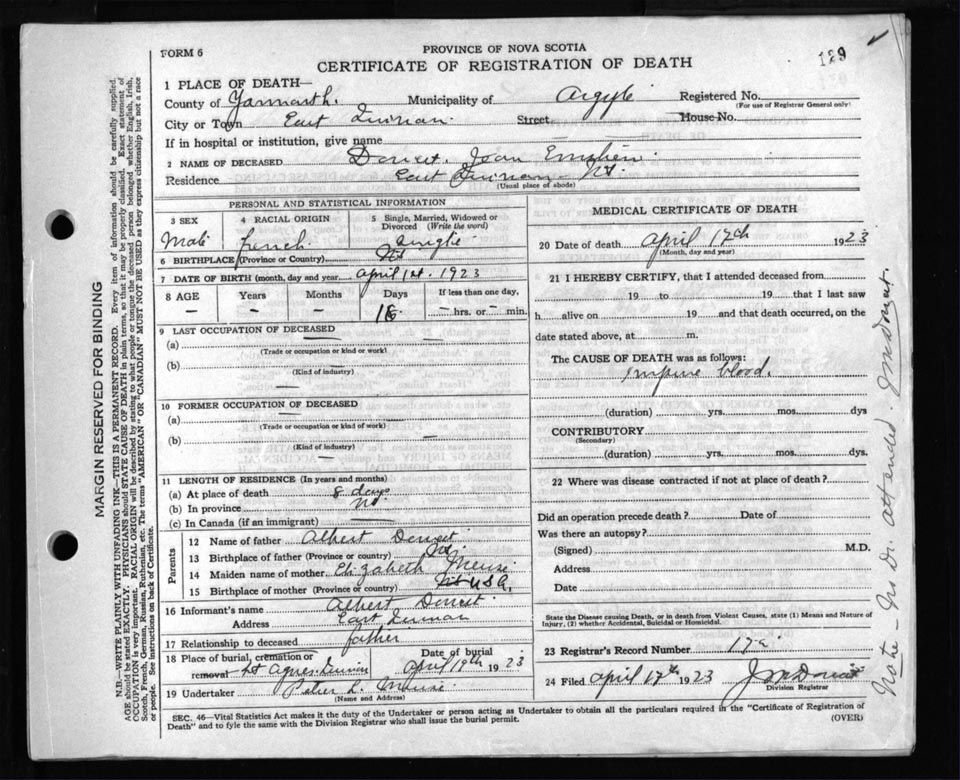 FORM 6
PROVINCE OF NOVA SCOTIA
CERTIFICATE OF REGISTRATION OF DEATH
129
1 PLACE OF DEATH—
County of Yarmouth. Municipality of Argyle Registered No.
(For use of Registrar General only)
City or Town East Quinan. Street House No.
If in hospital or institution, give name
2 NAME OF DECEASED Doucet. Jean
Residence East Quinan - NS.
(Usual place of abode)
PERSONAL AND STATISTICAL INFORMATION
3 SEX 4 RACIAL ORIGIN 5 Single, Married, Widowed or Divorced (Write the word)
Male French. Single
6 BIRTHPLACE (Province or Country) NS
7 DATE OF BIRTH (month, day and year) April 1st. 1923
8 AGE Years Months Days If less than one day,
— — — hrs. or — min.
9 LAST OCCUPATION OF DECEASED
(a)
(Trade or occupation or kind or work)
(b)
(Kind of industry)
10 FORMER OCCUPATION OF DECEASED
(a)
(Trade or occupation or kind of work)
(b)
(Kind of industry)
11 LENGTH OF RESIDENCE (In years and months)
(a) At place of death 8 days
(b) In province NS.
(c) In Canada (if an immigrant)
Parents
12 Name of father Albert Doucet
13 Birthplace of father (Province or country) NS
14 Maiden name of mother Elizabeth Meuse
15 Birthplace of mother (Province or country) USA,
16 Informant's name Albert Doucet.
Address East Quinan
17 Relationship to deceased father
18 Place of burial, cremation or removal St Agnes Quinan Date of burial April 19th 1923
19 Undertaker Peter L. Meuse
(Name and Address)
MEDICAL CERTIFICATE OF DEATH
20 Date of death April 17th 1923
(Month, day and year)
21 I HEREBY CERTIFY, that I attended deceased from
19 to 19 that I last saw
h alive on 19 and that death occurred, on the
date stated above, at m.
The CAUSE OF DEATH was as follows:
Impure blood.
(duration) yrs. mos. dys
CONTRIBUTORY
(Secondary)
(duration) yrs. mos. dys.
22 Where was disease contracted if not at place of death?
Did an operation precede death? Date of
Was there an autopsy?
(Signed) M.D.
Address
Date
State the Disease causing Death, or in death from Violent Causes, state (1) Means and Nature of
Injury, (2) whether Accidental, Suicidal or Homicidal.
23 Registrar's Record Number
24 Filed April 1923 J M Doucet
Division Registrar
SEC. 46—Vital Statistics Act makes it the duty of the Undertaker or person acting as Undertaker to obtain all the particulars required in the "Certificate of Registration of
Death" and to fyle the same with the Division Registrar who shall issue the burial permit.
(OVER)
MARGIN RESERVED FOR BINDING
N.B.—WRITE PLAINLY WITH UNFADING INK—THIS IS A PERMANENT RECORD. Every item of information should be carefully supplied.
AGE should be stated EXACTLY. PHYSICIANS should STATE CAUSE OF DEATH in plain terms, so that it may be properly classified. Exact statement of
OCCUPATION is very important. RACIAL ORIGIN will be described by stating to what people or tongue the deceased person belonged whether English, Irish,
Scotch, French, German, Russian, Ruthenian, etc. The terms "AMERICAN" OR "CANADIAN" MUST NOT BE USED as they express citizenship but not a race
or people. See instructions on back of Certificate.
Note - No Dr. attended. J M Doucet.